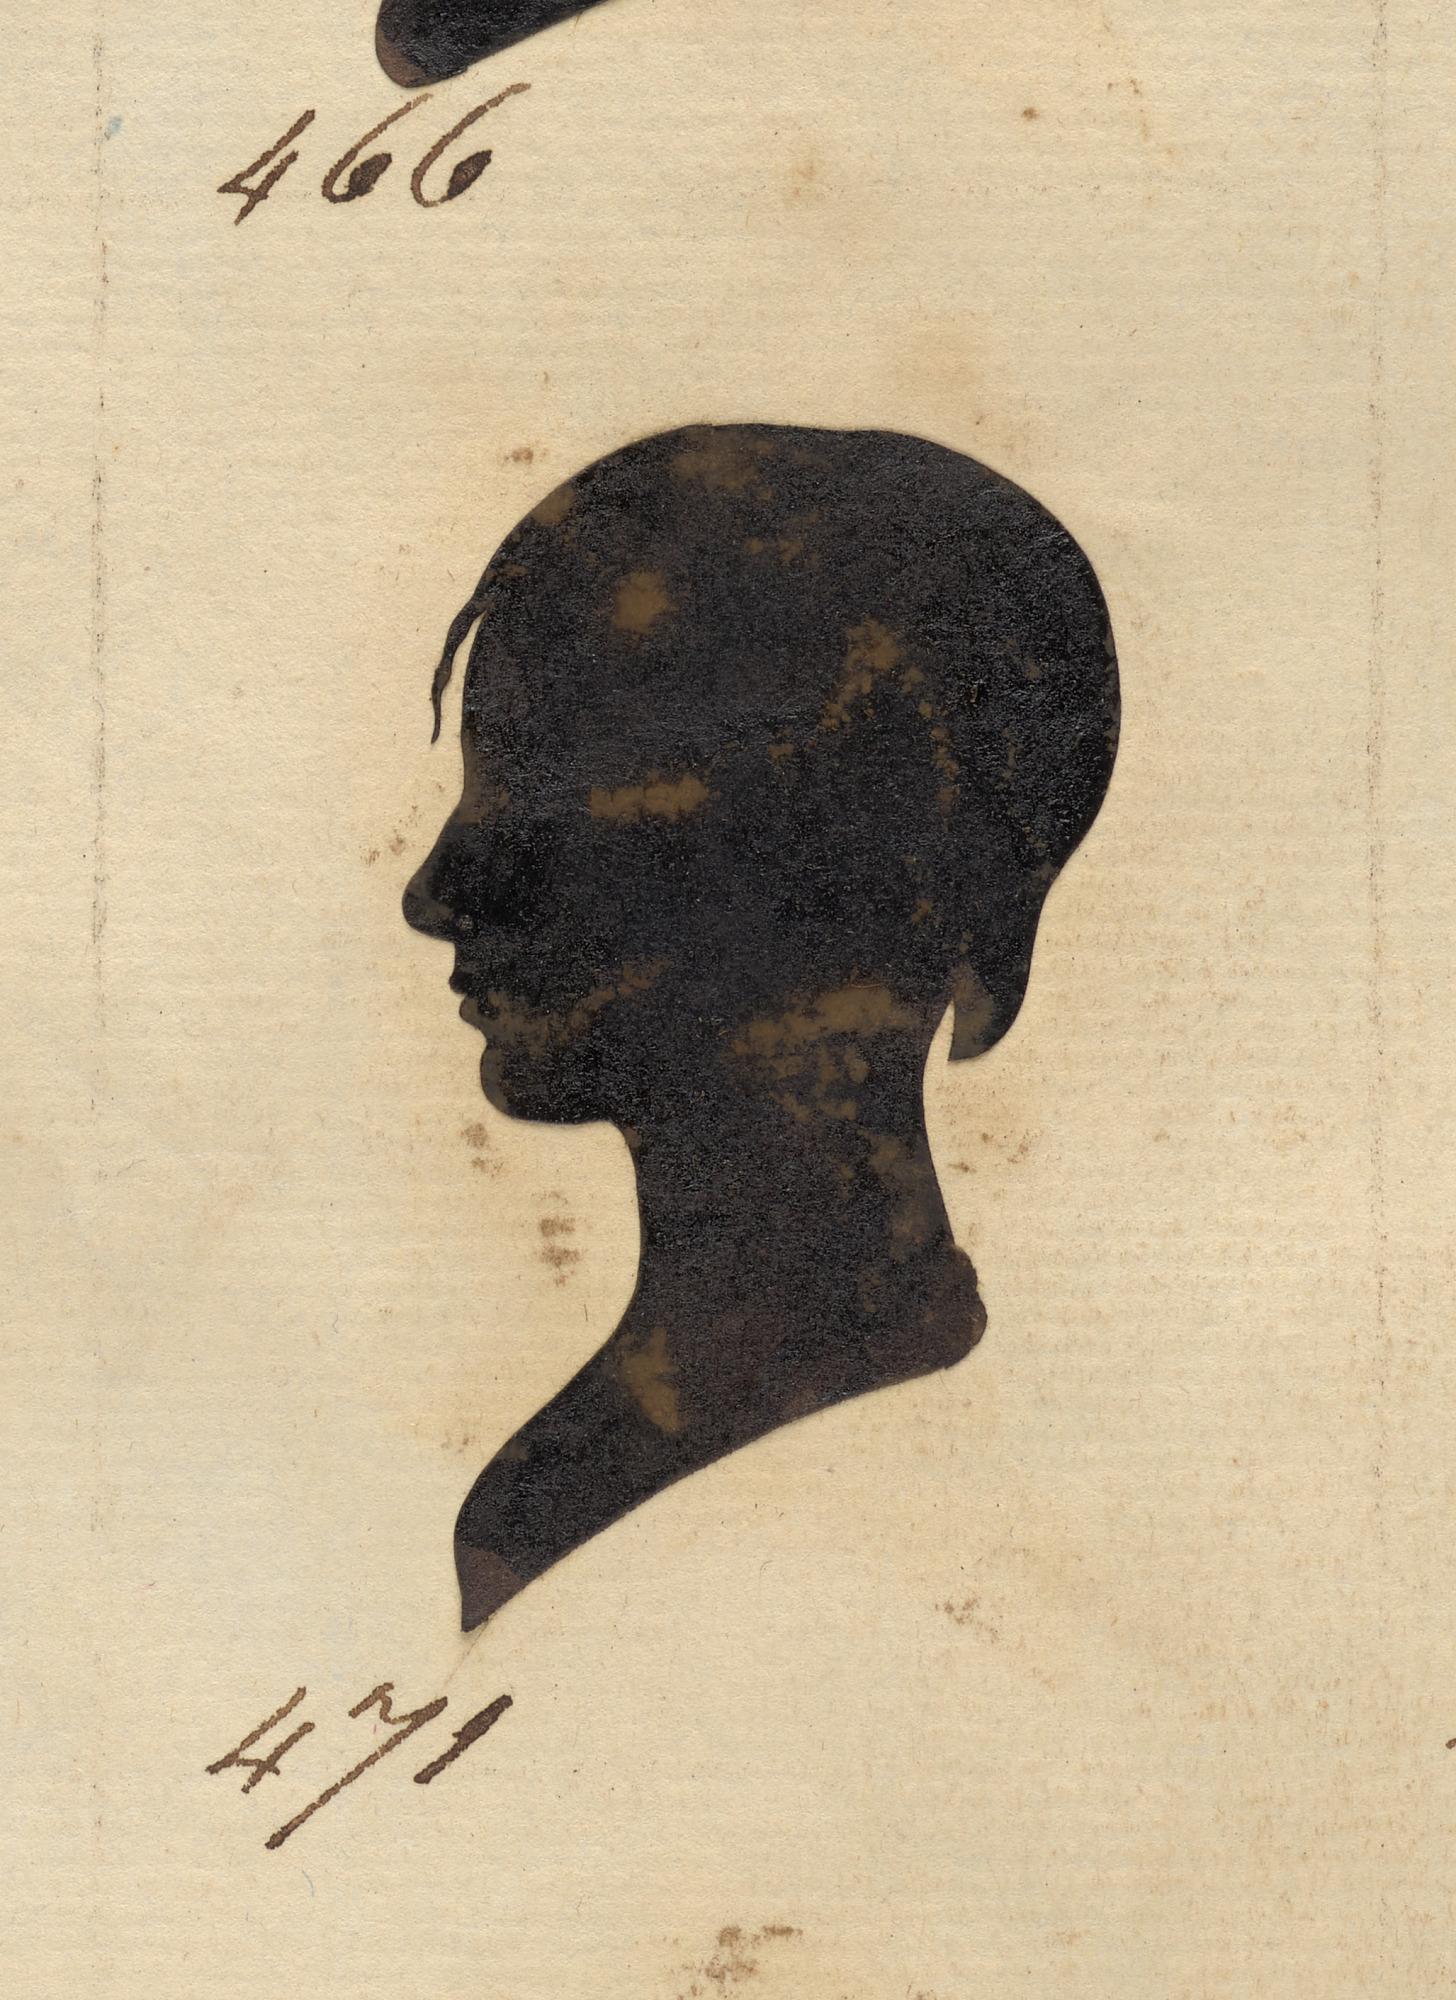 466
471